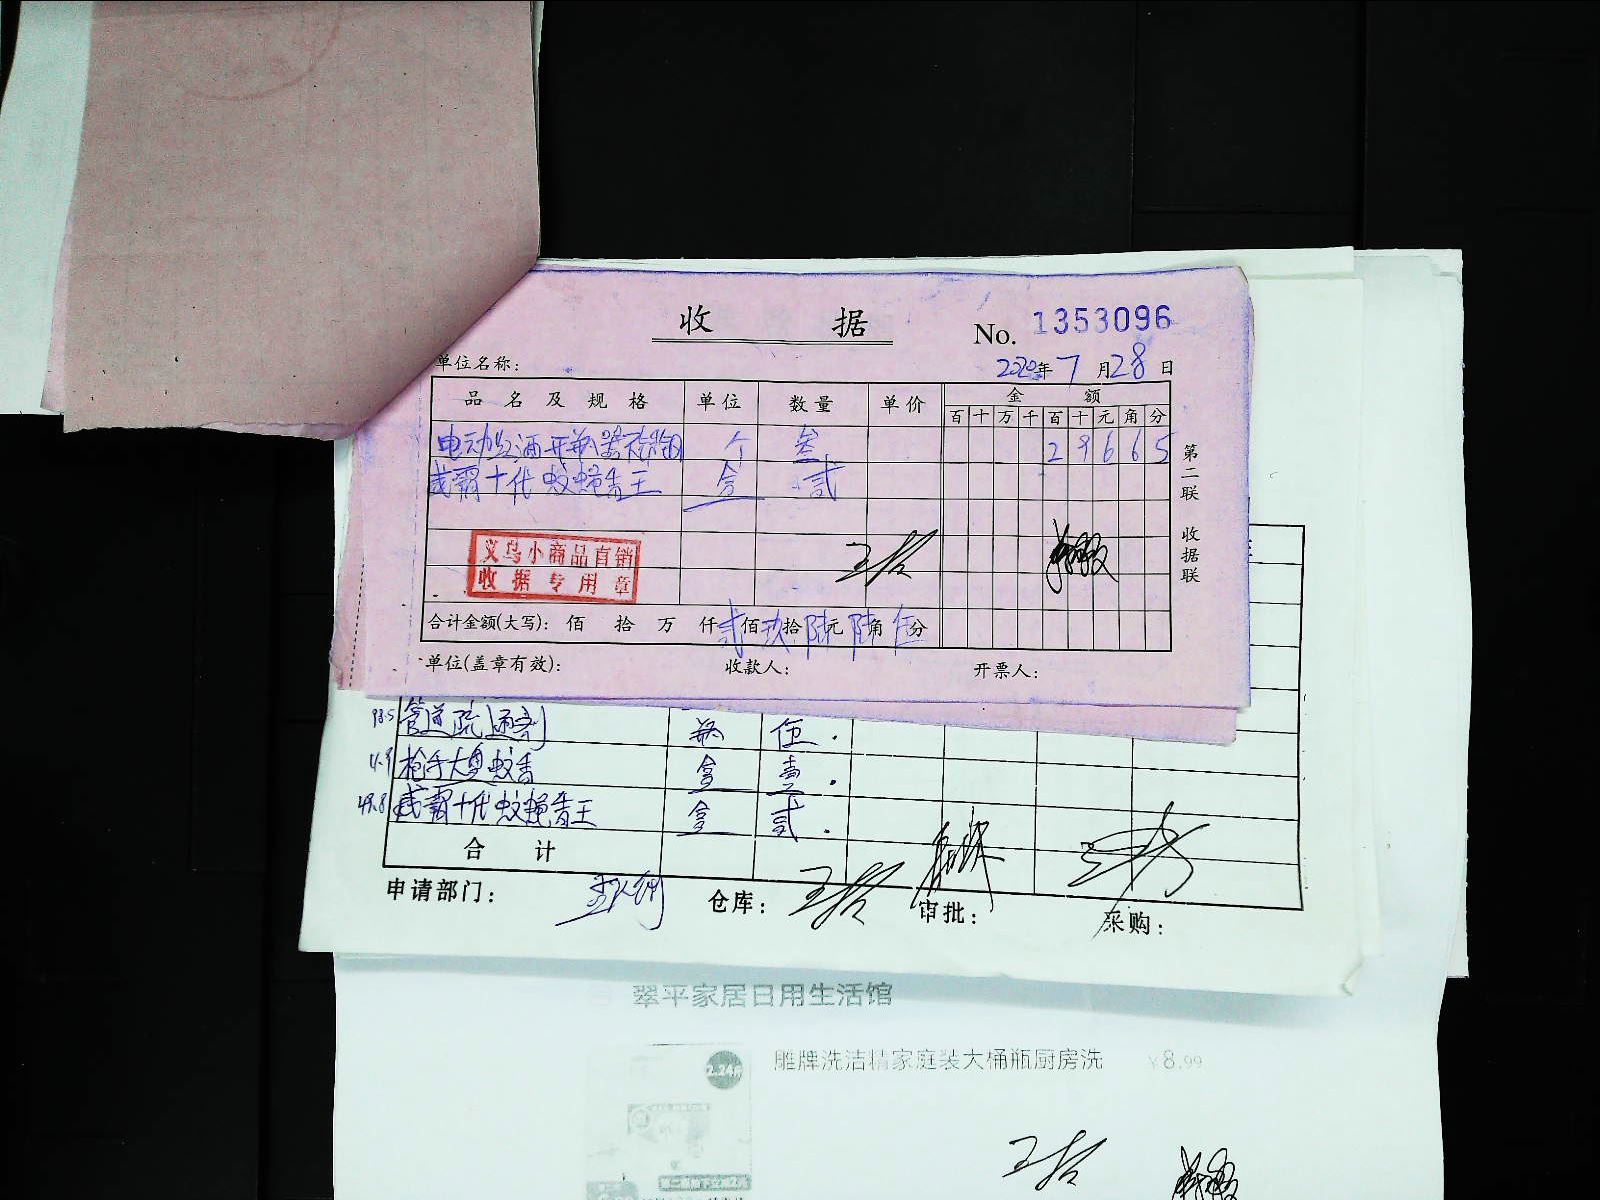 收 据
No. 1353096
单位名称:
2020年 7 月 28 日
品 名 及 规 格 单位 数量 单价 金 额
百 十 万 千 百 十 元 角 分
电动红酒开瓶器 个 叁 2 9 6 6 5
十代蚊蝇香王 盒 贰
第二联 收据联
义乌小商品直销
收据专用章
合计金额(大写): 佰 拾 万 仟 贰佰玖拾陆元陆角伍分
单位(盖章有效): 收款人: 开票人:
98.5 管道疏通剂 瓶 伍.
枪手大盘蚊香 盒 壹.
49.8 十代蚊蝇香王 盒 贰.
合 计
申请部门: 仓库: 审批: 采购:
翠平家居日用生活馆
雕牌洗洁精家庭装大桶瓶厨房洗 ¥8.99
2.24斤